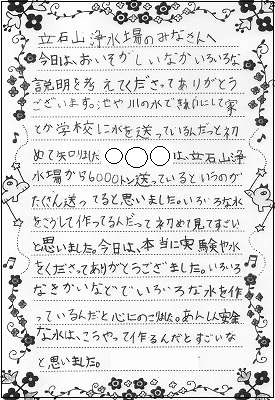 立石山浄水場のみなさんへ
今日は、おいそがしいなかいろいろな
説明を考えてくださってありがとう
ございます。池や川の水できれいにして家
とか学校に水を送っているんだっと初
めて知りました○○○は、立石山浄
水場から6000トン送っているというのが
たくさん送ってると思いました。いろいろな水
をこうして作ってるんだって初めて見てすごい
と思いました。今日は、本当に実験や水
をくださってありがとうございました。いろいろ
なきかいなどでいろいろな水を作
っているんだと心にのこりました。あんしん安全
な水は、こうやって作るんだとすごいな
と思いました。